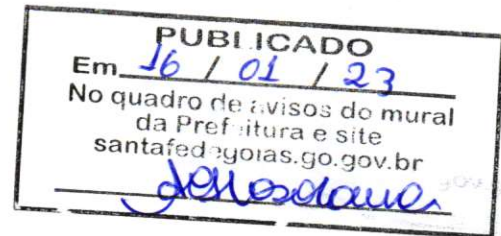 PUBLICADO
Em 16 / 01 / 23
No quadro de avisos do mural
da Prefeitura e site
santafedegoias.go.gov.br